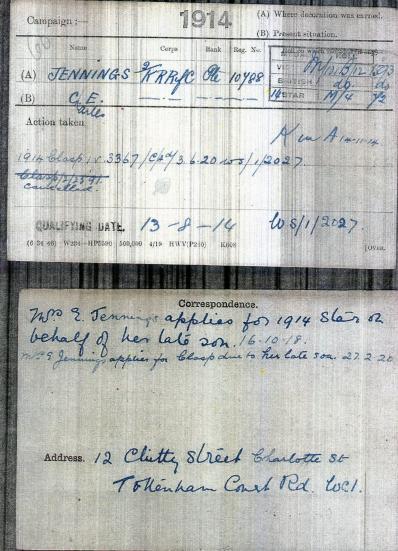 Campaign :— 1914 (A) Where decoration was earned.
(B) Present situation.
Name Corps Rank Reg. No.
(A) JENNINGS 2/KRRifC Pte 10788
(B) C. E.
Action taken
K in A
1914 Clasp 3367 3.6.20 WS/1/2027.
cancelled.
STAR
QUALIFYING DATE. 13-8-14 WS/1/2027.
(6 34 46) W234—HP5590 500,000 4/19 HWV(P240) K608 [Over.
Correspondence.
Mrs E. Jennings applies for 1914 Star on
behalf of her late son. 16-10-18.
Mrs E Jennings applies for Clasp due to her late son. 27-2-20
Address. 12 Chitty Street Charlotte St
Tottenham Court Rd. WC1.